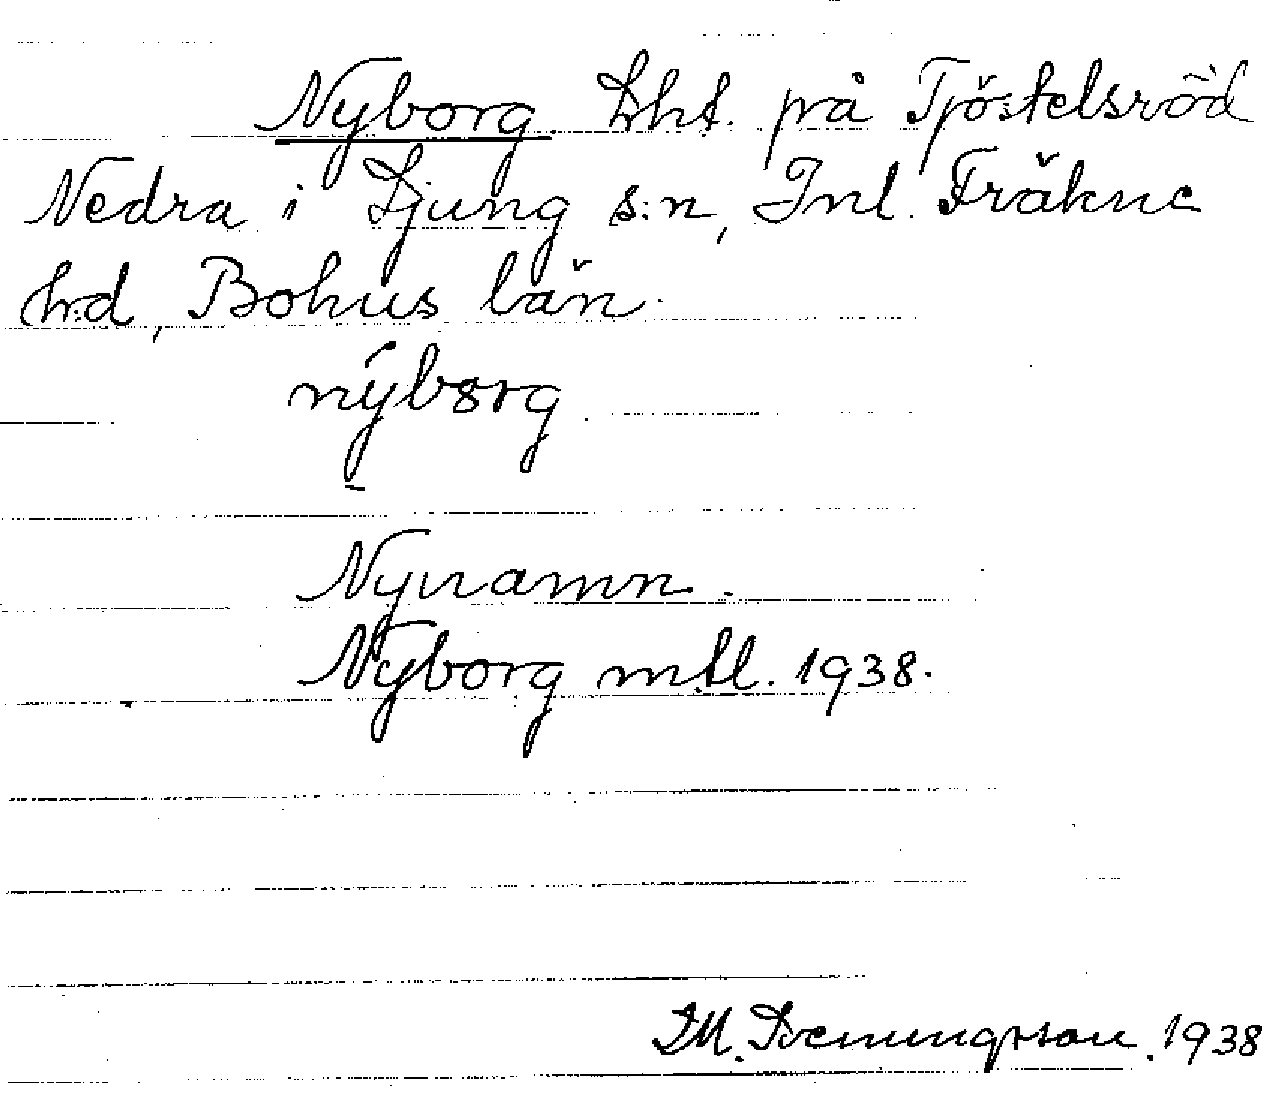 Nyborg. Lht. på Tjöstelsröd
Nedra i Ljung s:n, Inl. Fräkne
h:d, Bohus län.
nýbɔrg.
Nynamn.
Nyborg mtl. 1938.
1938